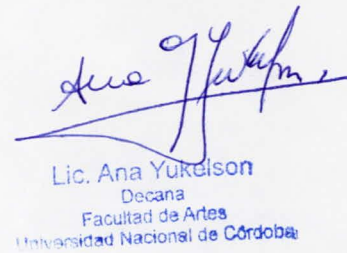 Ana Yukelson
Lic. Ana Yukelson
Decana
Facultad de Artes
Universidad Nacional de Córdoba